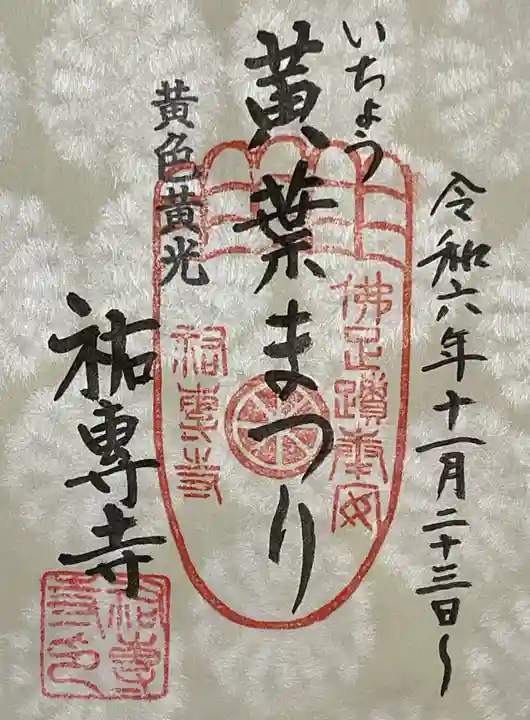 令和六年十一月二十三日〜
いちょう
黄葉まつり
黄色黄光
祐專寺
佛足蹟奉安
祐専寺